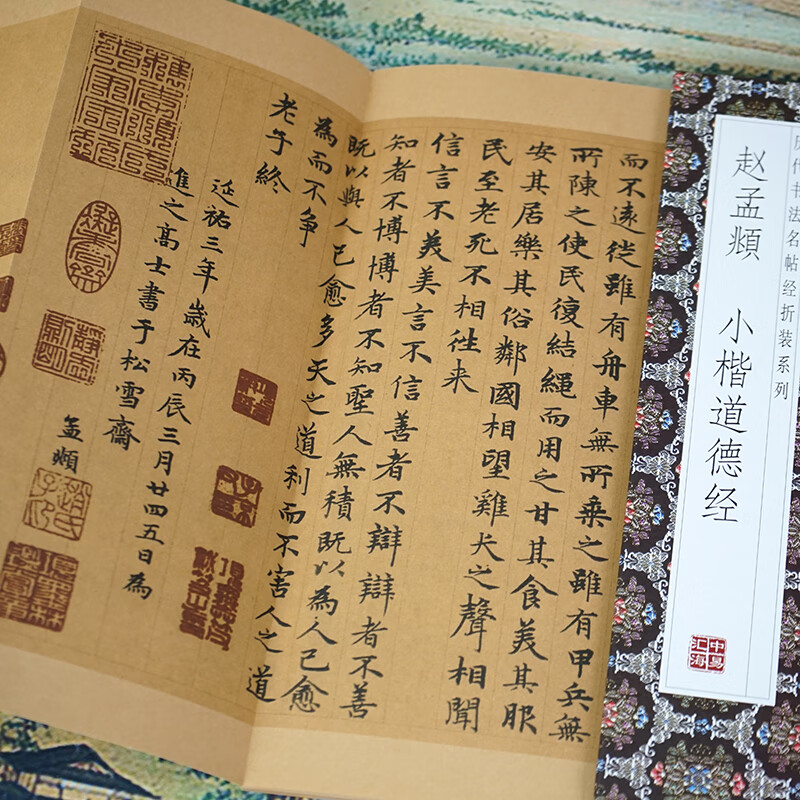 历代书法名帖经折装系列
赵孟頫 小楷道德经
中易汇海
而不遠徙雖有舟車無所乗之雖有甲兵無
所陳之使民復結繩而用之甘其食美其服
安其居樂其俗鄰國相望雞犬之聲相聞
民至老死不相往来
信言不美美言不信善者不辯辯者不善
知者不博博者不知聖人無積既以為人己愈
既以與人己愈多天之道利而不害人之道
為而不争
老子終
延祐三年歲在丙辰三月廿四五日為
進之高士書于松雪齋
孟頫
趙氏子昂